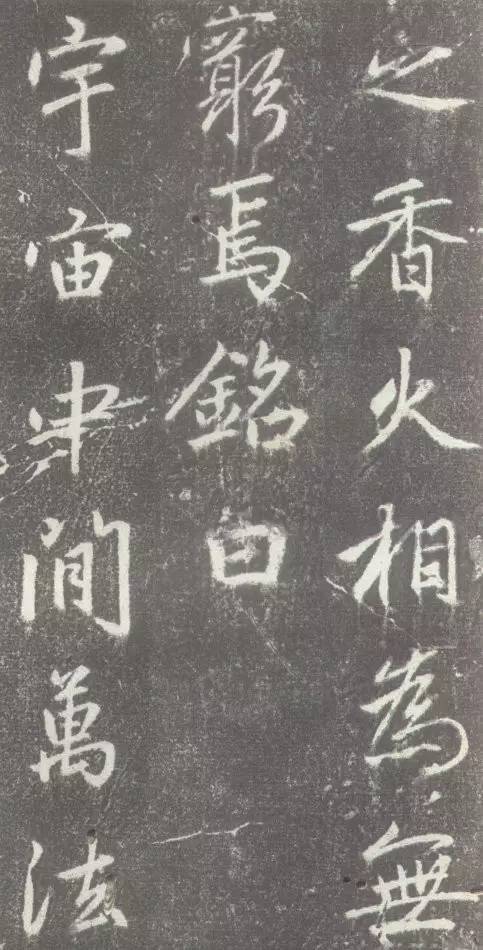 之香火相為無
窮焉銘曰
宇宙中間萬法